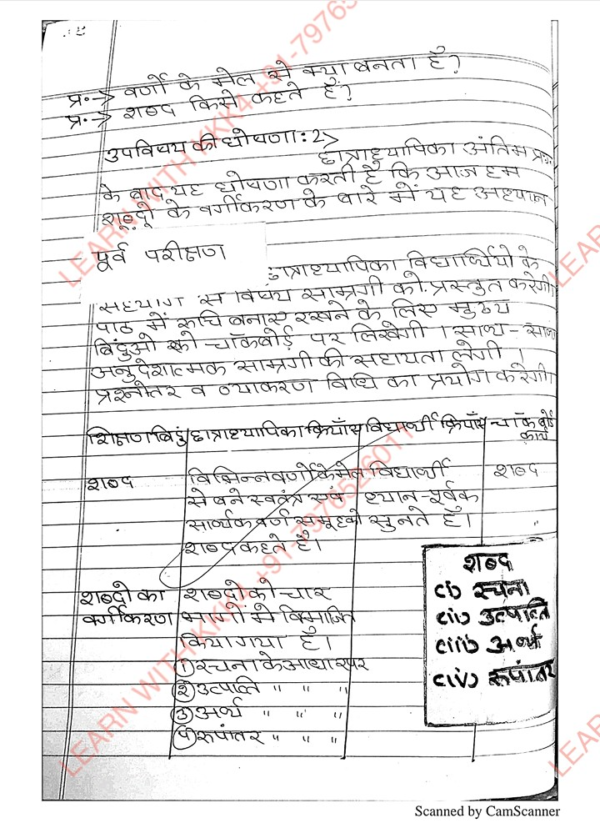 प्र:→ वर्णो के मेल से क्या बनता है?
प्र:→ शब्द किसे कहते है?
उपविषय की घोषणा:→
छात्राध्यापिका अंतिम प्रश्न
के बाद यह घोषणा करती है कि आज हम
शब्दो के वर्गीकरण के बारे में यह अध्ययन
पूर्व परीक्षण
छात्राध्यापिका विद्यार्थियो के
सहयोग से विषय सामग्री को प्रस्तुत करेगी
पाठ में रूचि बनाए रखने के लिए मुख्य
बिंदुओ को चॉकबोर्ड पर लिखेगी । साथ-साथ
अनुदेशात्मक सामग्री की सहायता लेगी ।
प्रश्नोतर व व्याकरण विधि का प्रयोग करेगी।
शिक्षण बिंदु छात्राध्यापिका क्रियाँए विद्यार्थी क्रियाँए चॉकबोर्ड
कार्य
शब्द विभिन्न वर्णो के मेल विद्यार्थी शब्द
से बने स्वतंत्र एवं ध्यान-पूर्वक
सार्थक वर्ण समूह को सुनते है।
शब्द कहते है।
शब्दो का शब्दो को चार
वर्गीकरण भागो मे विभाजित
किया गया है।
① रचना के आधार पर
② उत्पति " " "
③ अर्थ " " "
④ रूपांतर " " "
शब्द
(i) रचना
(ii) उत्पाति
(iii) अर्थ
(iv) रूपांतर
LEARN WITH KKK4 +91-7976526011
Scanned by CamScanner